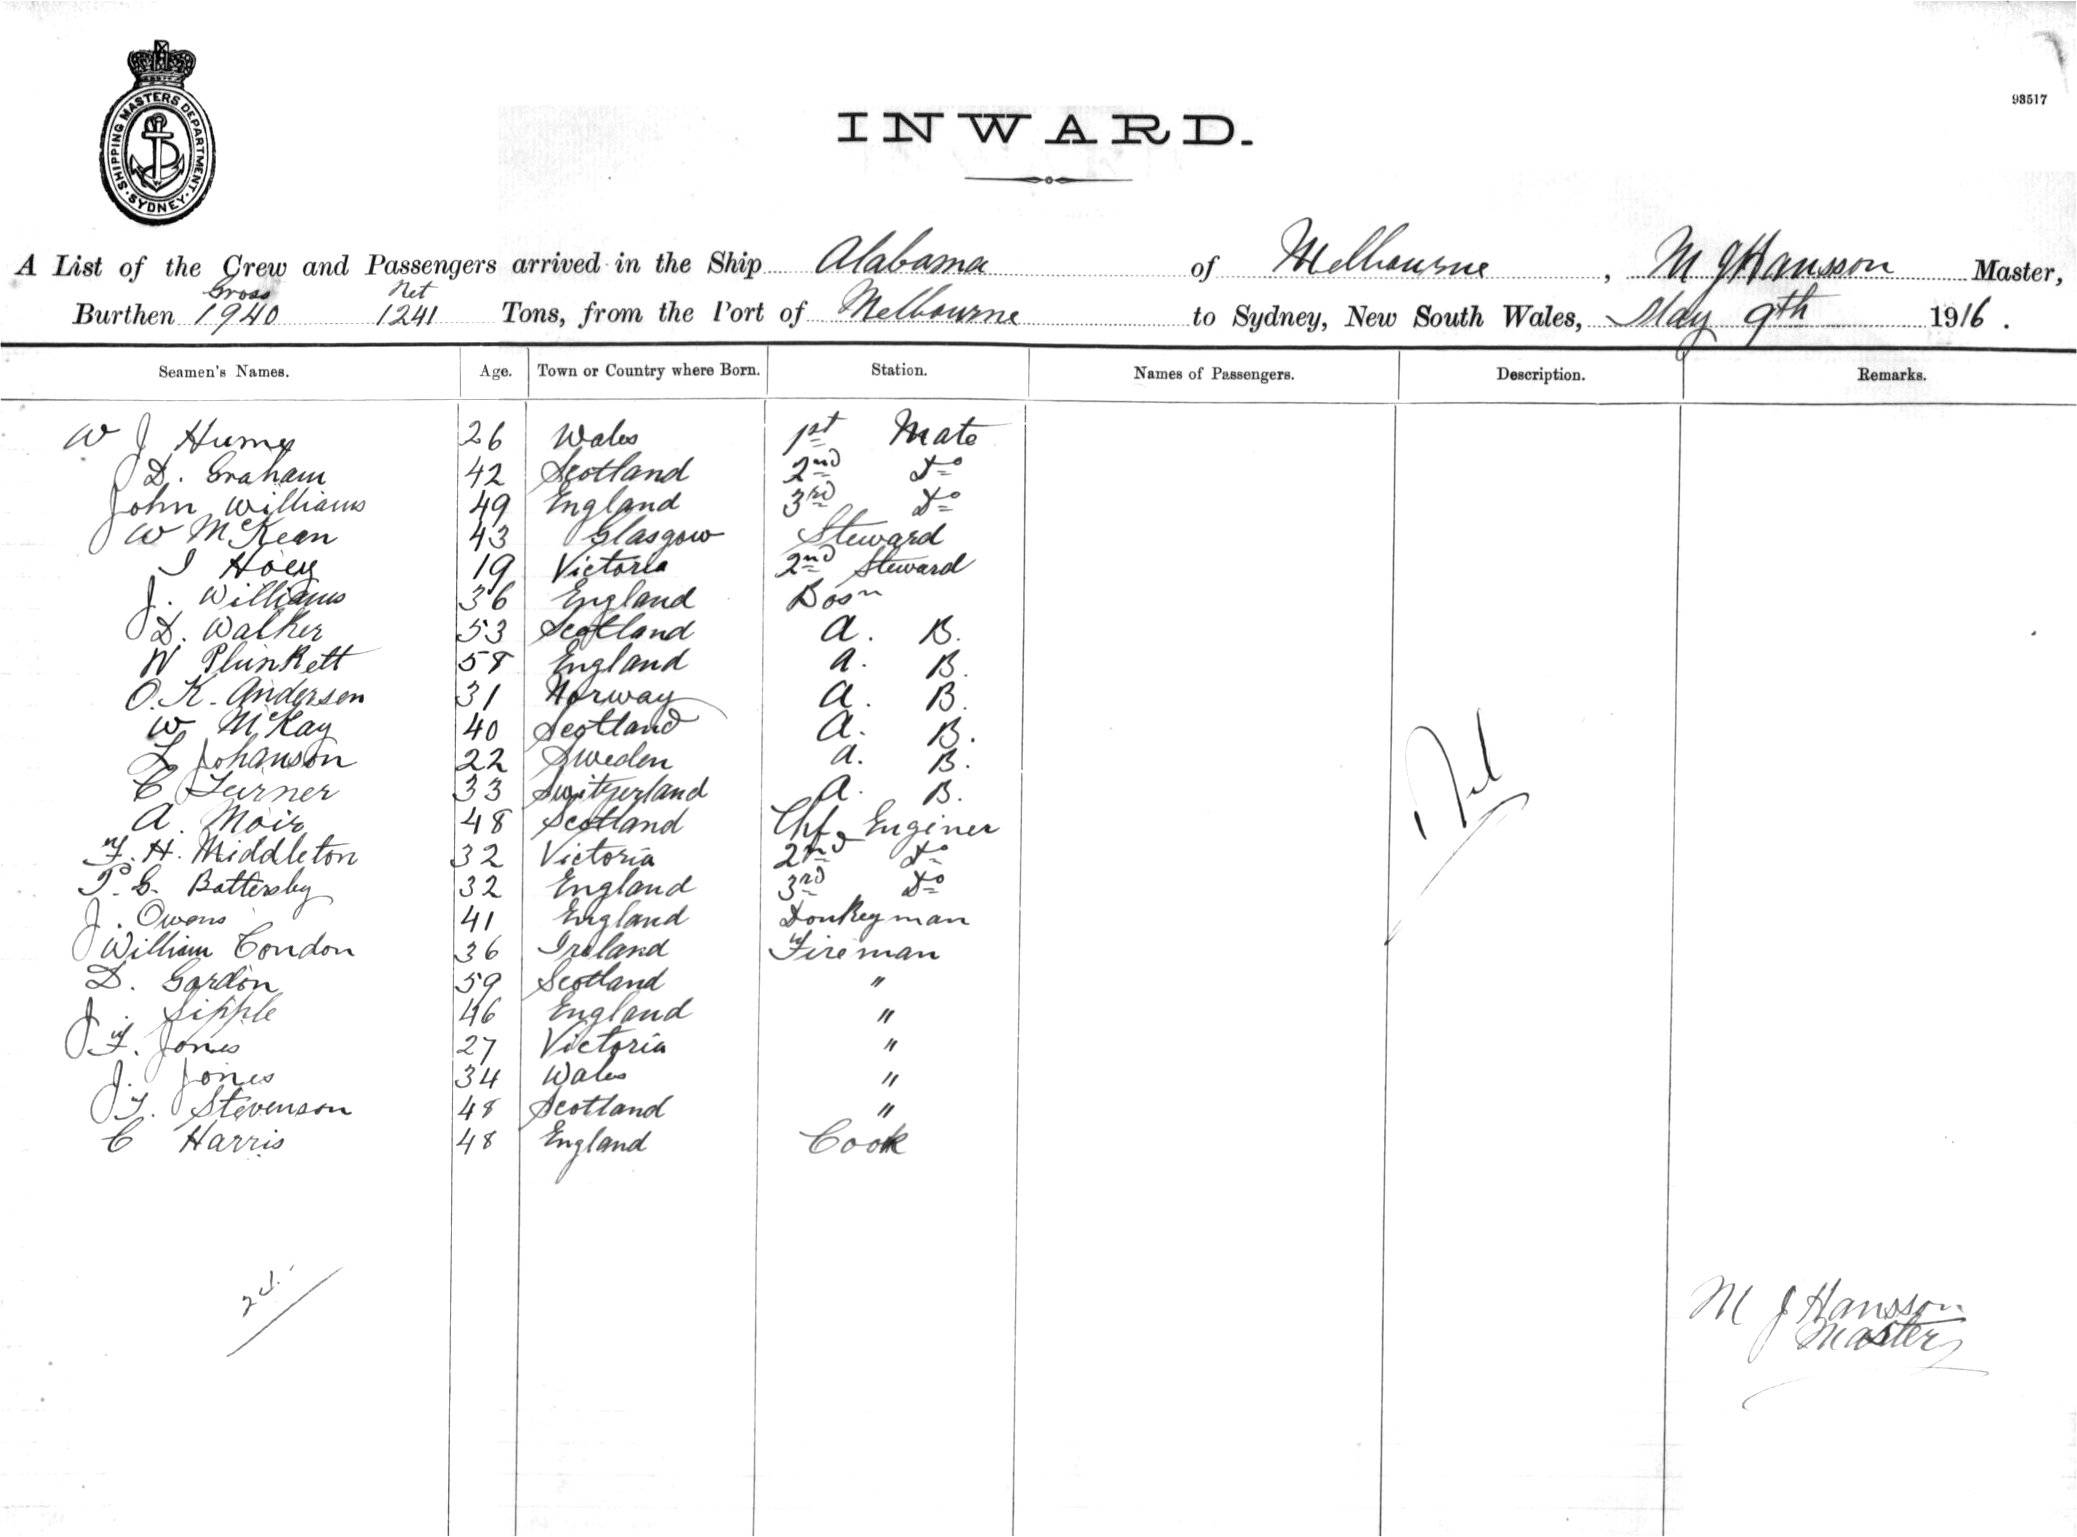 SHIPPING MASTERS DEPARTMENT. SYDNEY
93517
INWARD.
A List of the Crew and Passengers arrived in the Ship Alabama of Melbourne, M J Hansson Master,
Gross Net
Burthen 1940 1241 Tons, from the Port of Melbourne to Sydney, New South Wales, May 9th 1916.
Seamen's Names. Age. Town or Country where Born. Station. Names of Passengers. Description. Remarks.
W J Humes 26 Wales 1st Mate
D. Graham 42 Scotland 2nd Do
John Williams 49 England 3rd Do
W McKean 43 Glasgow Steward
J Hoey 19 Victoria 2nd Steward
J. Williams 36 England Bosn
D. Walker 53 Scotland A. B.
W Plunkett 58 England A. B.
O. K. Andersen 31 Norway A. B.
W McKay 40 Scotland A. B.
L Johanson 22 Sweden A. B.
C Turner 33 Switzerland A. B.
A. Moir 48 Scotland Chf Enginer
F. H. Middleton 32 Victoria 2nd Do
P. G. Battersby 32 England 3rd Do
J. Owens 41 England Donkeyman
William Condon 36 Ireland Fireman
D. Gordon 59 Scotland "
J. Sipple 46 England "
F. Jones 27 Victoria "
J. Jones 34 Wales "
T. Stevenson 48 Scotland "
C Harris 48 England Cook
Nil
M J Hansson
Master